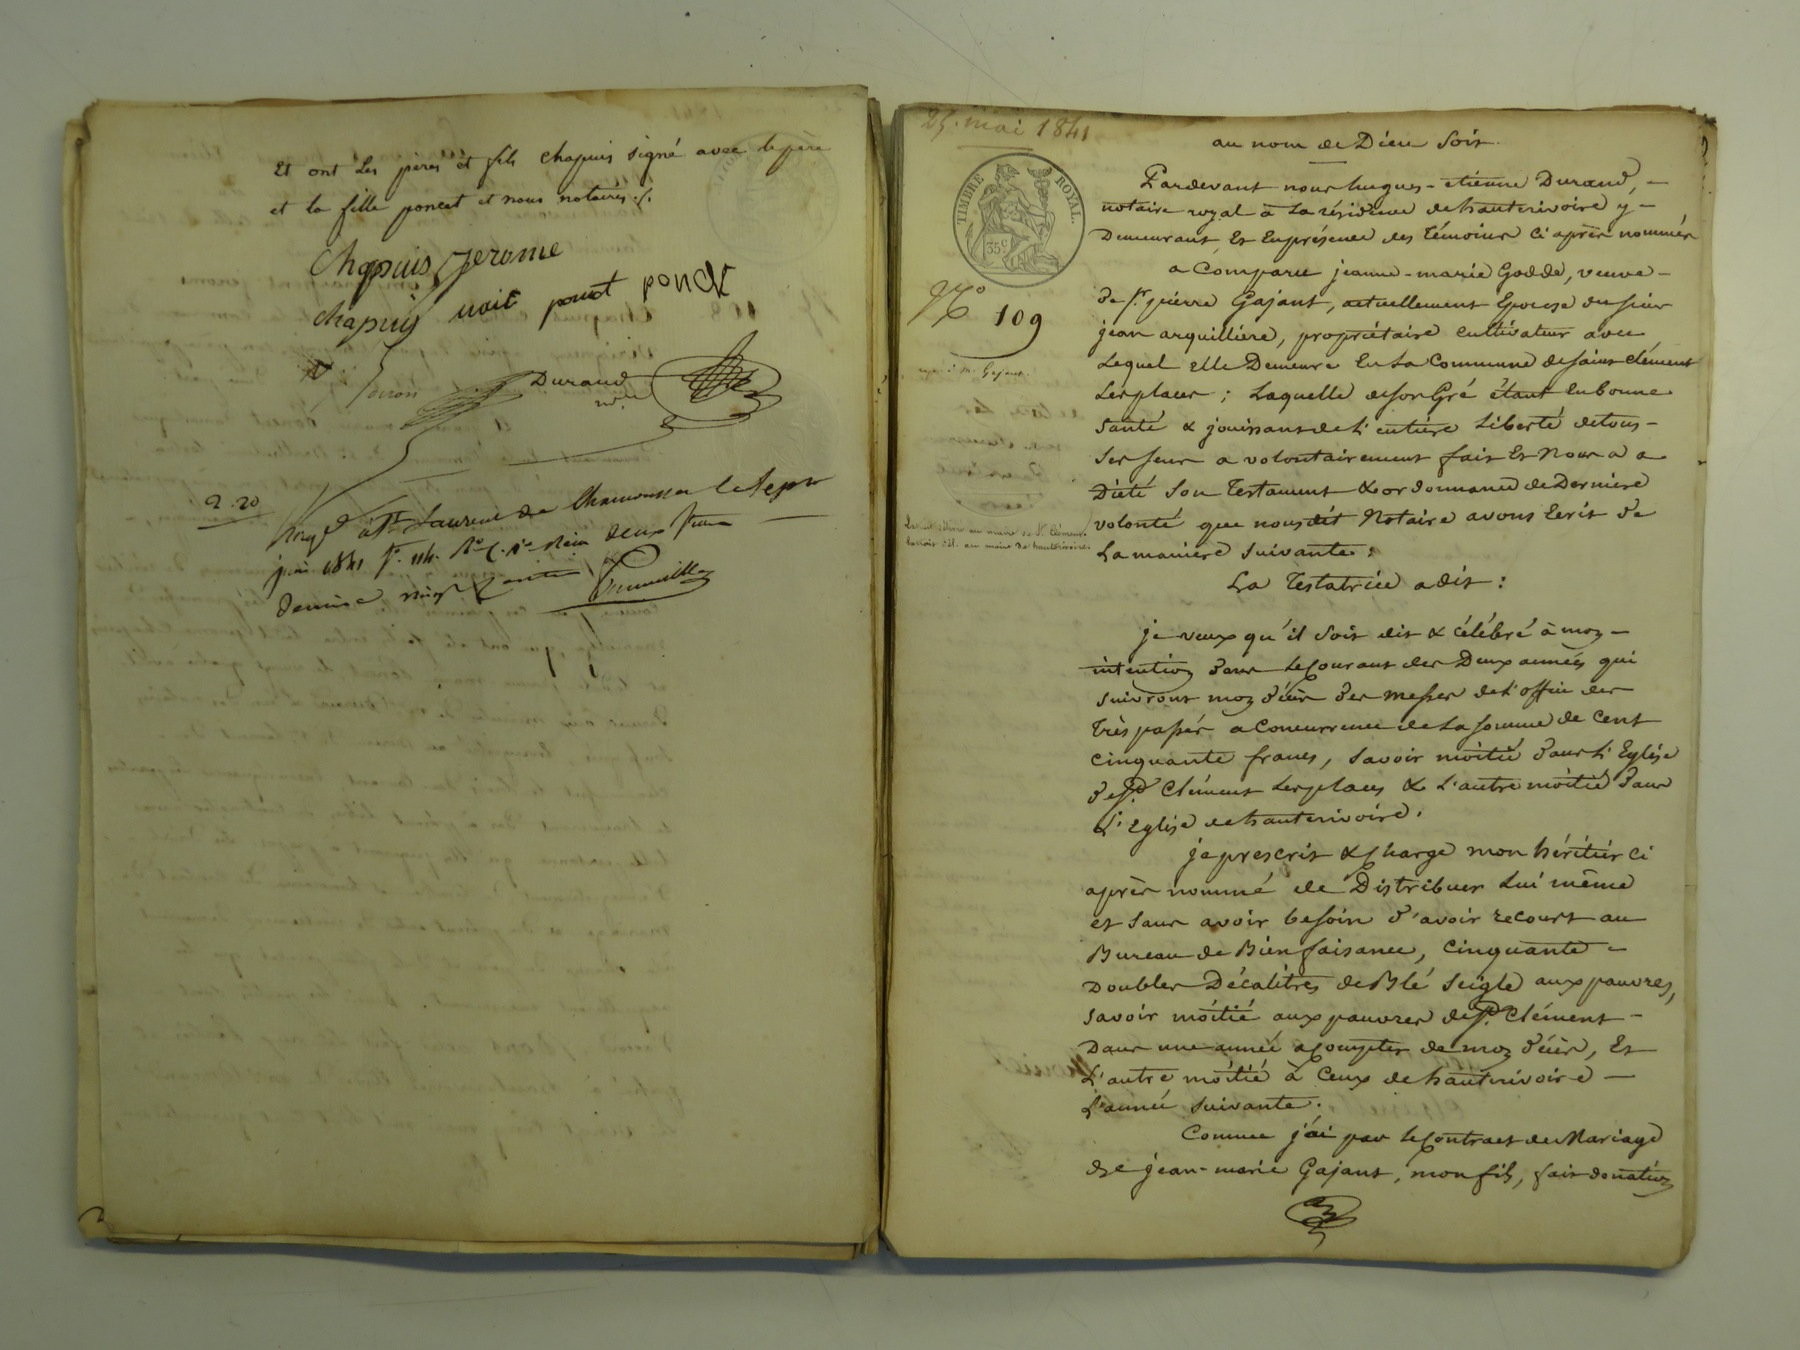 Et ont les pères et fils Chapuis signé avec le père
et la fille poncet et nous notaires ./.
Chapuis Jerome
chapuis noit poncet poncet
Durand
nre
2.20
Engé à St Laurent de Chamousset le sept
juin 1841 fo 114. Ro C. 1re Reçu deux francs
dixième vingt centimes
25. mai 1841
TIMBRE ROYAL.
35c
No 109
Extrait délivré au maire de St Clément.
Extrait dél. au maire de hauterivoire.
au nom de Dieu Soit.
Pardevant nous hugues-etienne Durand, -
notaire royal à la résidence de hauterivoire y -
Demeurant Et En présence des témoins Ci après nommés
a Comparu jeanne-marie Godde, veuve -
de Sr pierre Gajant, actuellement Epouse du sieur
jean arquillière, propriétaire cultivateur avec
Lequel elle Demeure En La Commune de saint clément
Les places ; Laquelle de son Gré étant En bonne
Santé & jouissant de L'entière Liberté de tous -
Ses sens a volontairement fait Et Nous a
Dicté Son Testament & ordonnance de Dernière
volonté que nous dit Notaire avons Ecrit de
La manière suivante :
La Testatrice a dit :
je veux qu'il soit dit & célébré à mon -
intention dans le Courant des Deux années qui
suivront mon décès des messes de L'office des
Très passés a Concurrence de La somme de Cent
cinquante francs, Savoir moitié dans L'Eglise
de St. Clément Les places & L'autre moitié dans
L'Eglise de hauterivoire.
je prescris & Charge mon héritier ci
après nommé de Distribuer Lui même
et sans avoir besoin d'avoir recours au
Bureau de Bienfaisance, Cinquante -
Doubles Décalitres de Blé Seigle aux pauvres,
savoir moitié aux pauvres de St. Clément -
Dans une année a Compter de mon décès, Et
L'autre moitié à Ceux de hauterivoire -
L'année suivante.
Comme j'ai par Le Contract de Mariage
de jean-marie Gajant, mon fils, fait donation